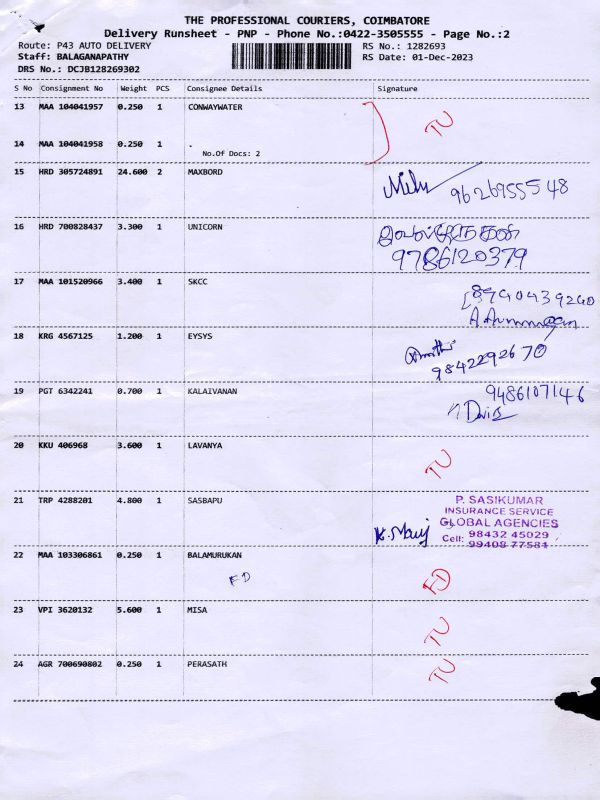 THE PROFESSIONAL COURIERS, COIMBATORE
Delivery Runsheet - PNP - Phone No.:0422-3505555 - Page No.:2
Route: P43 AUTO DELIVERY RS No.: 1282693
Staff: BALAGANAPATHY RS Date: 01-Dec-2023
DRS No.: DCJB128269302
S No Consignment No Weight PCS Consignee Details Signature
13 MAA 104041957 0.250 1 CONWAYWATER
TU
14 MAA 104041958 0.250 1 .
No.Of Docs: 2
15 HRD 305724891 24.600 2 MAXBORD
9626955548
16 HRD 700828437 3.300 1 UNICORN
9786120379
17 MAA 101520966 3.400 1 SKCC
8940439240
18 KRG 4567125 1.200 1 EYSYS
9842292670
19 PGT 6342241 0.700 1 KALAIVANAN 9486107146
20 KKU 406968 3.600 1 LAVANYA
TU
21 TRP 4288201 4.800 1 SASBAPU P. SASIKUMAR
INSURANCE SERVICE
GLOBAL AGENCIES
Cell: 98432 45029
99408 77584
22 MAA 103306861 0.250 1 BALAMURUKAN
FD FD
23 VPI 3620132 5.600 1 MISA
TU
24 AGR 700690802 0.250 1 PERASATH TU